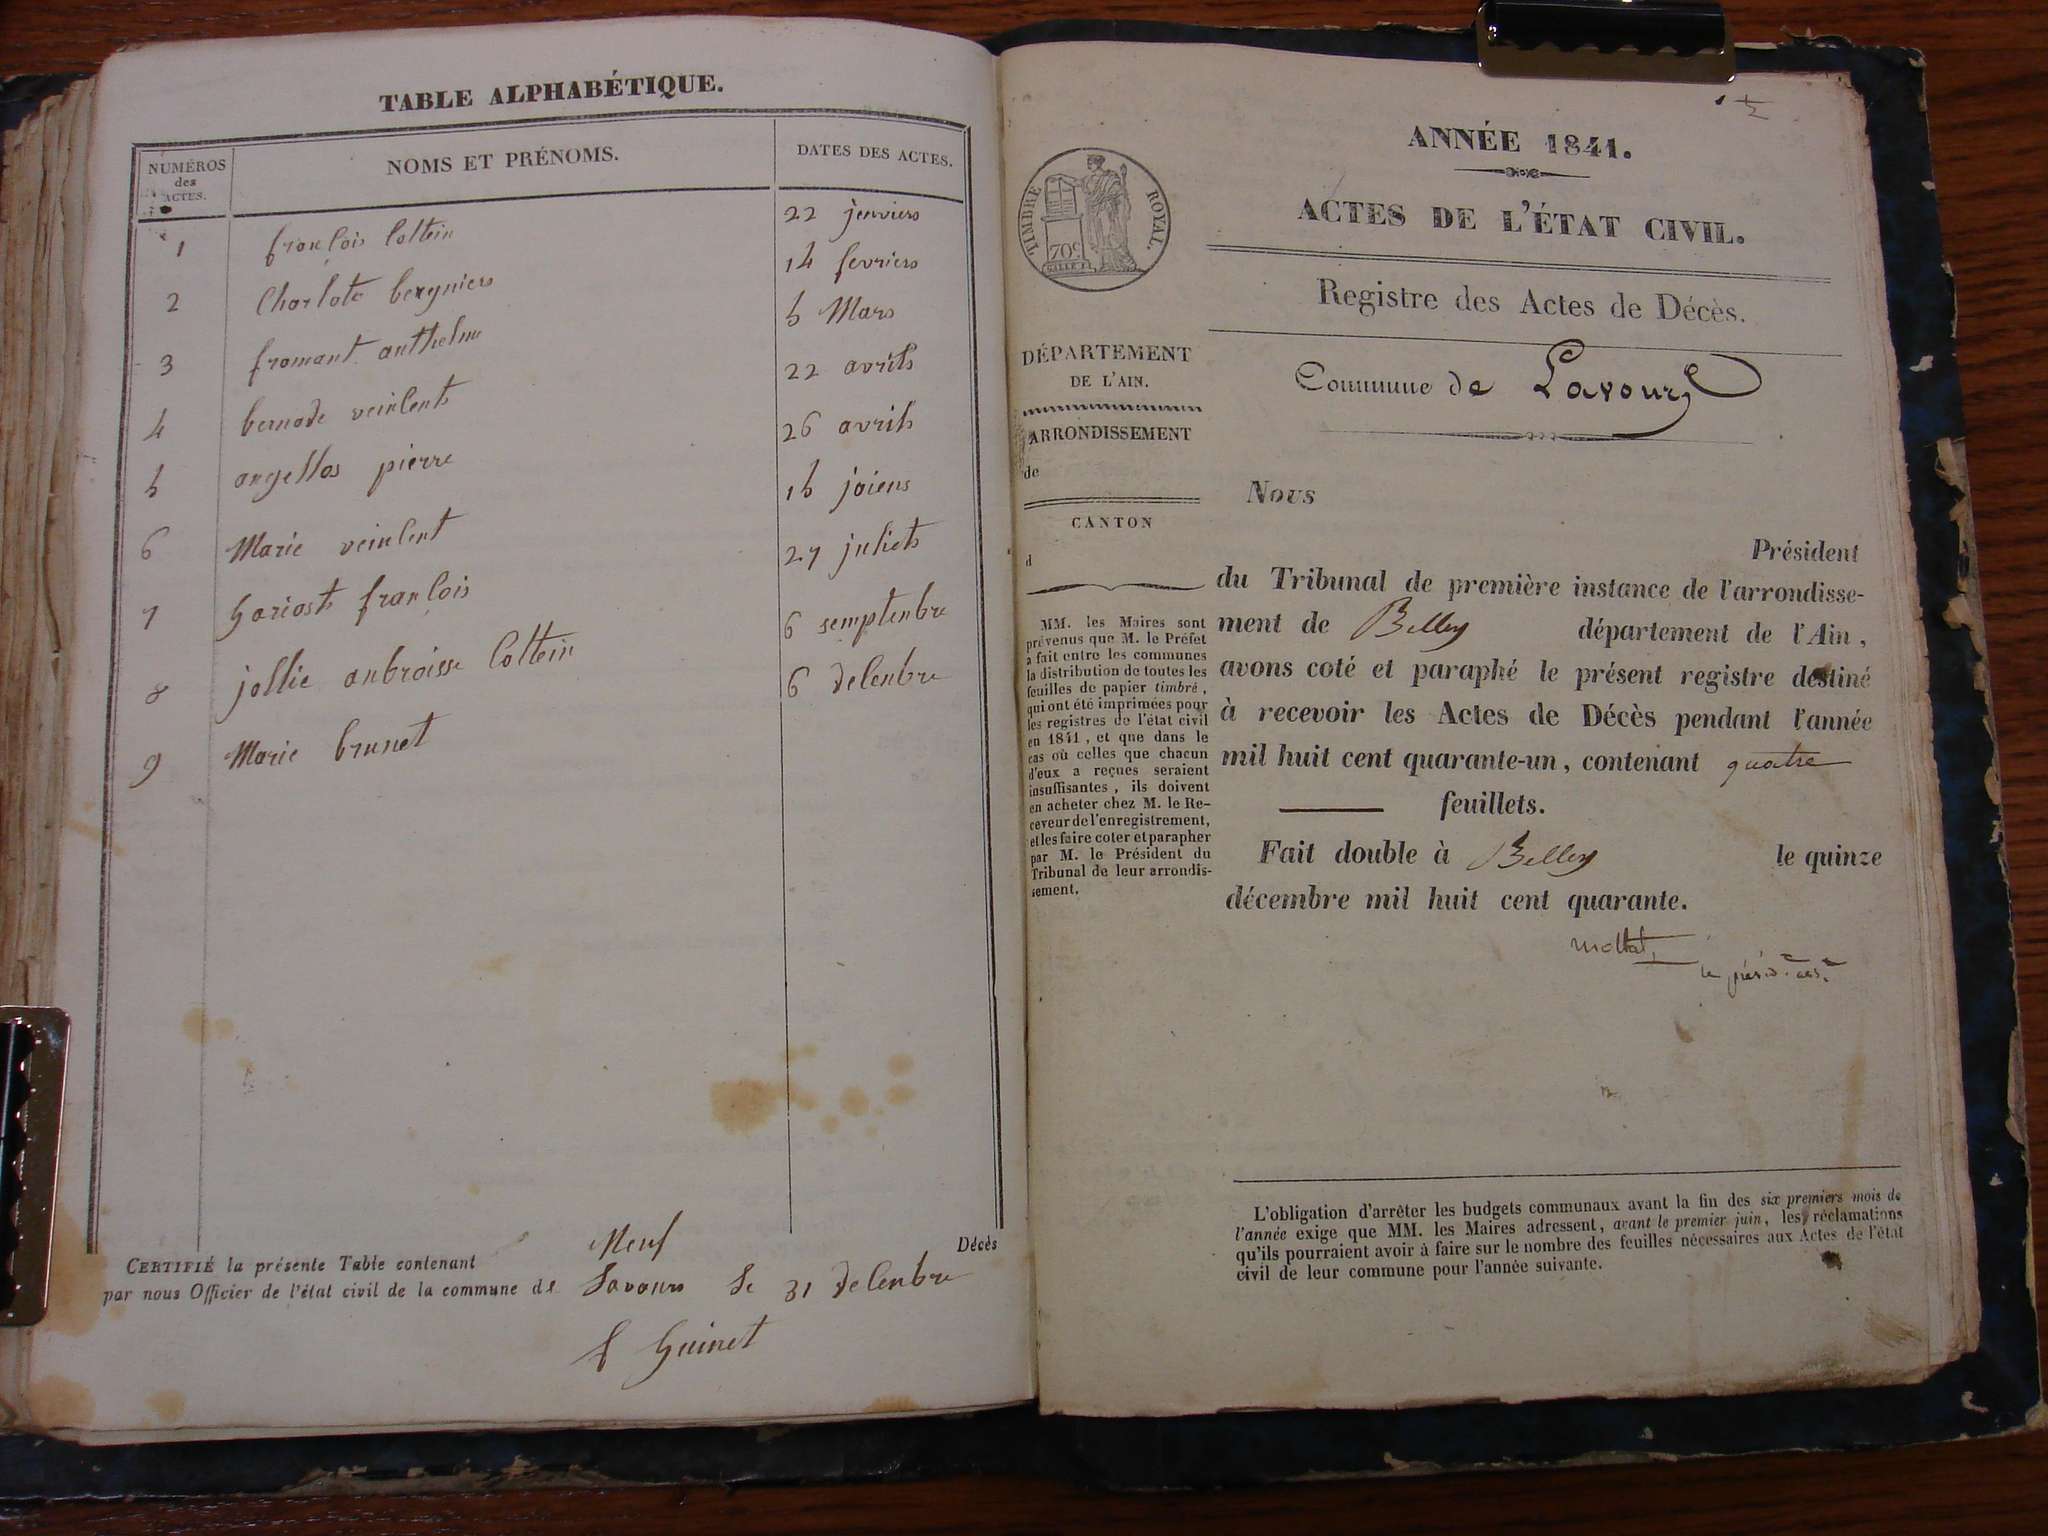 TABLE ALPHABÉTIQUE.
NUMÉROS
des
ACTES.
NOMS ET PRÉNOMS.
DATES DES ACTES.
1 françois Collein 22 jenviers
2 Charlote bergniers 14 fevriers
3 fromant anthelme 5 Mars
4 bernade veinlents 22 avrils
5 angellos pierre 26 avrils
6 Marie veinlent 15 joiens
7 françois 27 juliets
8 jollie anbroisse Collein 6 semptenbre
9 Marie brunet 6 decenbre
CERTIFIÉ la présente Table contenant Neuf Décès
par nous Officier de l'état civil de la commune de Savours Le 31 decenbre
Guinet
ANNÉE 1841.
ACTES DE L'ÉTAT CIVIL.
TIMBRE ROYAL.
70c.
Registre des Actes de Décès.
Commune de Savours
DÉPARTEMENT
DE L'AIN.
ARRONDISSEMENT
de
CANTON
d
MM. les Maires sont
prévenus que M. le Préfet
a fait entre les communes
la distribution de toutes les
feuilles de papier timbré,
qui ont été imprimées pour
les registres de l'état civil
en 1841, et que dans le
cas où celles que chacun
d'eux a reçues seraient
insuffisantes, ils doivent
en acheter chez M. le Re-
ceveur de l'enregistrement,
et les faire coter et parapher
par M. le Président du
Tribunal de leur arrondis-
sement.
Nous
Président
du Tribunal de première instance de l'arrondisse-
ment de Belley département de l'Ain,
avons coté et paraphé le présent registre destiné
à recevoir les Actes de Décès pendant l'année
mil huit cent quarante-un, contenant quatre
feuillets.
Fait double à Belley le quinze
décembre mil huit cent quarante.
L'obligation d'arrêter les budgets communaux avant la fin des six premiers mois de
l'année exige que MM. les Maires adressent, avant le premier juin, les réclamations
qu'ils pourraient avoir à faire sur le nombre des feuilles nécessaires aux Actes de l'état
civil de leur commune pour l'année suivante.